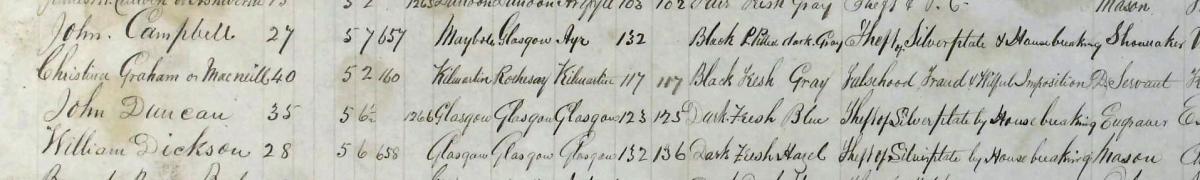 John. Campbell 27 5 7 657 Maybole Glasgow Ayr 132 Black P. Pitted dark Gray Theft of Silverplate & Housebreaking Shomaker
Christina Graham or Macneill 40 5 2 160 Kilmartin Rothesay Kilmartin 117 117 Black Fresh Gray Falsehood Fraud & Wilful Imposition D. Servant
John Duncan 35 5 6½ 1266 Glasgow Glasgow Glasgow 123 125 Dark Fresh Blue Theft of Silverplate by Housebreaking Engraver
William Dickson 28 5 6 658 Glasgow Glasgow Glasgow 132 136 Dark Fresh Hazel Theft of Silverplate by Housebreaking Mason